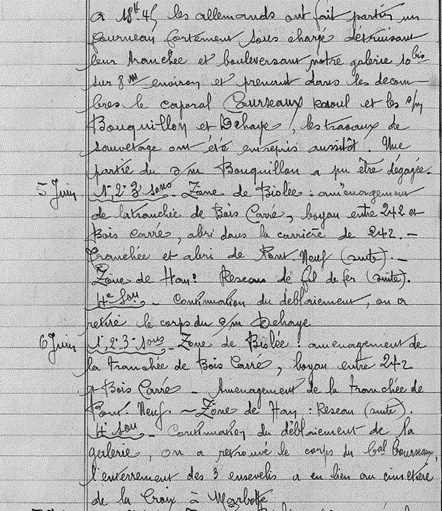 a 18h45 les allemands ont fait partir un
fourneau fortement sous chargé détruisant
leur tranchée et bouleversant notre galerie 10bis
sur 8m environ et prenant dans les decom-
bres le caporal Courseaux raoul et les s/m
Bouquillon et Dehaye, les travaux de
sauvetage ont été entrepris aussitôt. Une
partie du s/m Bouquillon a pu être dégagée.
5 Juin 1e 2e 3e sons - Zone de Bislée : aménagement
de la tranchée de Bois Carré, boyau entre 242 et
Bois carré, abri dans la carrière de 242. -
Tranchée et abri de Pont Neuf (suite). -
Zone de Han : Reseau de fil de fer (suite).
4e Son - Continuation du déblaiement, on a
retiré le corps du s/m Dehaye
6 Juin 1e, 2e 3e sons - Zone de Bislée : amenagement de
la tranchée de Bois Carré, boyau entre 242
a Bois Carre - Amenagement de la tranchée de
Pont Neuf - Zone de Han : Reseau (suite).
4e Son - Continuation du déblaiement de la
galerie, on a retrouvé le corps du Cal Courseaux,
l'enterrement des 3 ensevelis a eu lieu au cimetière
de la Croix à Marbotte